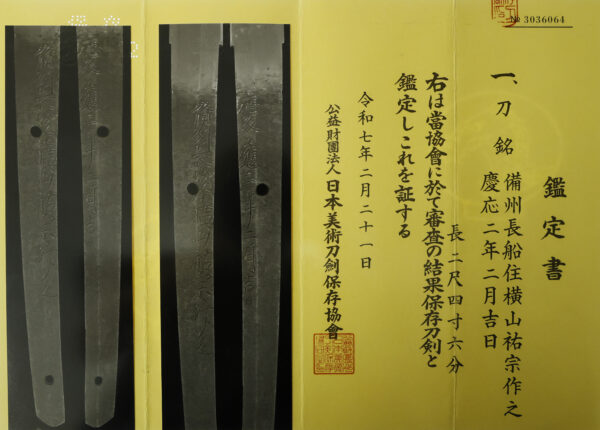 № 3036064
鑑定書
一、刀 銘 備州長船住横山祐宗作之
慶応二年二月吉日
長 二尺四寸六分
右は當協會に於て審査の結果保存刀剣と
鑑定しこれを証する
令和七年二月二十一日
公益財團法人 日本美術刀剣保存協會